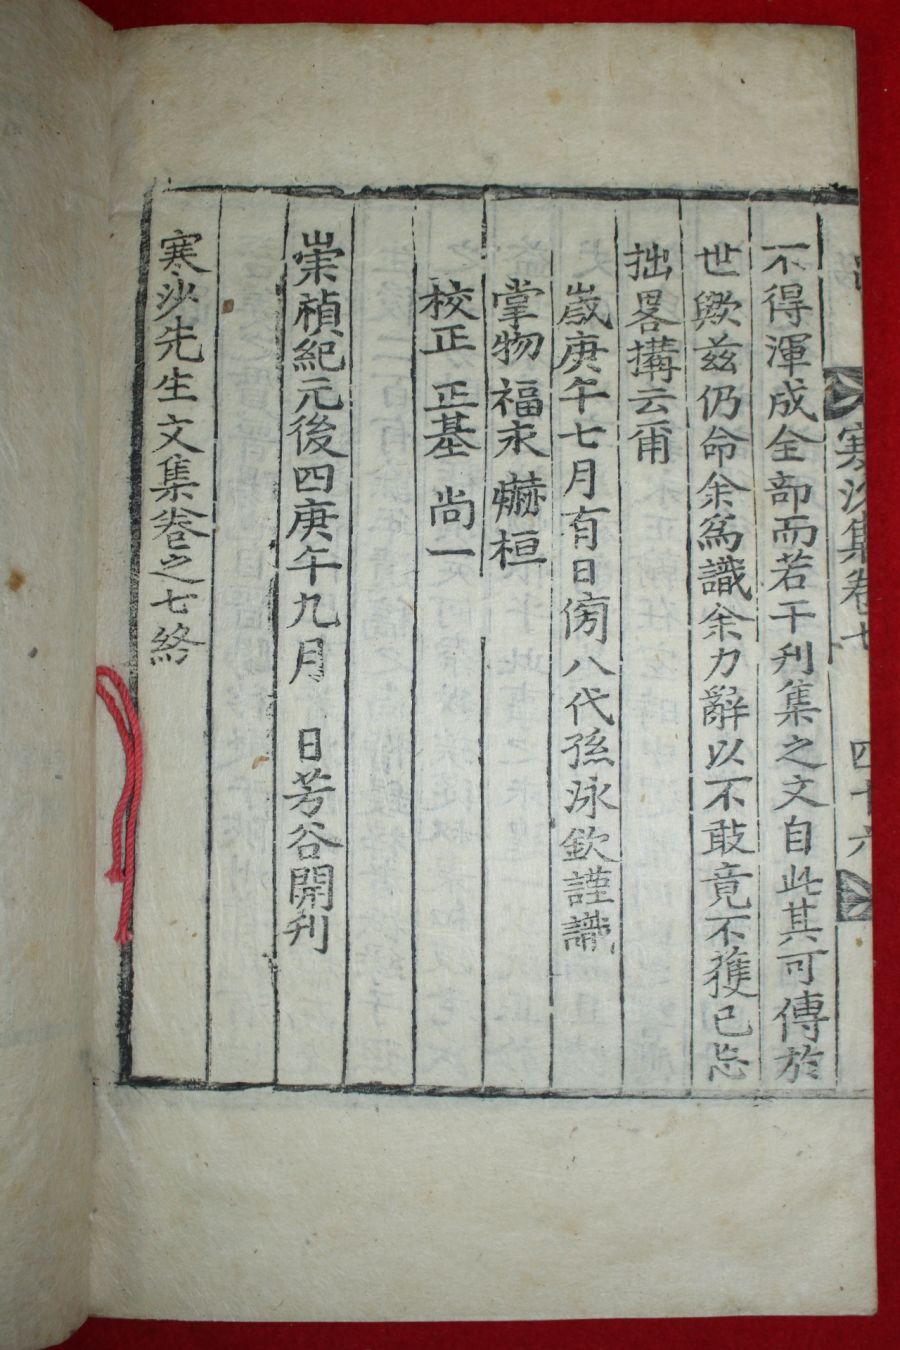 寒沙集卷七 四十六
不得渾成全部而若干刋集之文自此其可傳於
世歟茲仍命余爲識余力辭以不敢竟不獲已忘
拙畧搆云甭
歲庚午七月有日傍八代孫泳欽謹識
掌物福 爀桓
校正 正基 尚一
崇禎紀元後四庚午九月 日芳谷開刋
寒沙先生文集卷之七終